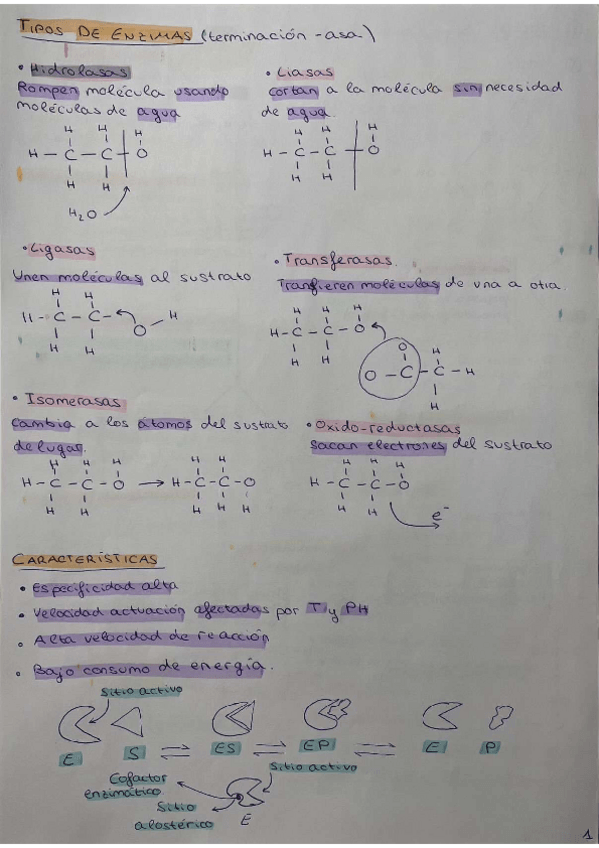 TIPOS DE ENZIMAS (terminación -asa)
• Hidrolasas
Rompen molécula usando
moléculas de agua
H H H
H - C - C - O
H H
H2O
• Liasas
cortan a la molécula sin necesidad
de agua.
H H H
H - C - C - O
H H
• Ligasas
Unen moléculas al sustrato
H H
H - C - C - O - H
H H
• Transferasas.
Tranfieren moléculas de una a otra.
H H H
H - C - C - O
H H
O H
O - C - C - H
H
• Isomerasas
cambia a los átomos del sustrato
de lugar.
H H H
H - C - C - O → H - C - C - O
H H
H H
H H H
• Oxido-reductasas
Sacan electrones del sustrato
H H H
H - C - C - O
H H
e-
CARACTERÍSTICAS
• Especificidad alta
• Velocidad actuación afectadas por T y PH
• Alta velocidad de reacción
• Bajo consumo de energía.
Sitio activo
E S ⇌ ES ⇌ EP ⇌ E P
Sitio activo
Cofactor
enzimático
Sitio
alostérico
E
1